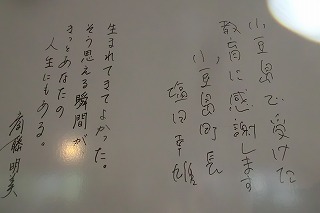 小豆島で受けた
教育に感謝します
小豆島町長
塩田幸雄
生まれてきてよかった。
そう思える瞬間が、
きっとあなたの
人生にもある。
斎藤明美